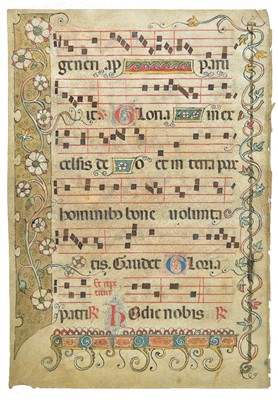 generi ap paru
it Gloria in ex
celsis de o et in terra pax
hominibus bone volunta
tis. Gaudet Gloria
patri R Hodie nobis R